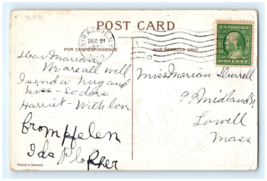 POST CARD
FOR CORRESPONDENCE
FOR ADDRESS ONLY
DEC 21
Dear Marian
We are all well
I send a hug and
kiss - So does
Harriet - With love
from Helen
Ida
Miss Marian Durrell
9 Midland
Lowell
Mass